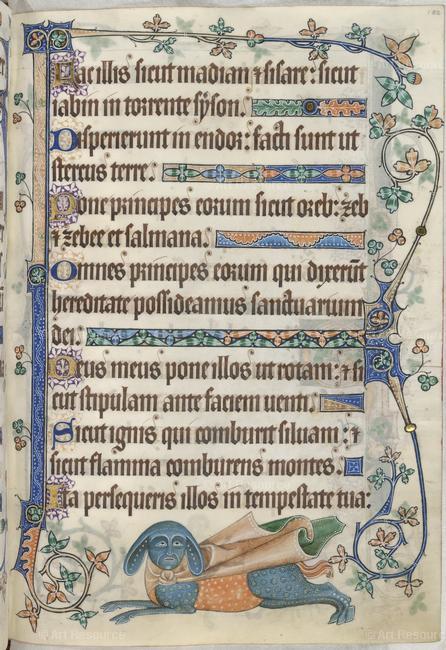 Fac illis sicut madian ⁊ sisare: sicut
iabin in torrente syson.
Disperierunt in endor: facti sunt ut
stercus terre.
Pone principes eorum sicut oreb: ⁊ zeb
⁊ zebee et salmana.
Omnes principes eorum qui dixerūt
hereditate possideamus sanctuarium
dei.
Deus meus pone illos ut rotam: ⁊ si
cut stipulam ante faciem uenti.
Sicut ignis qui comburit siluam: ⁊
sicut flamma comburens montes:
Ita persequeris illos in tempestate tua:
© Art Resource © Art Resource